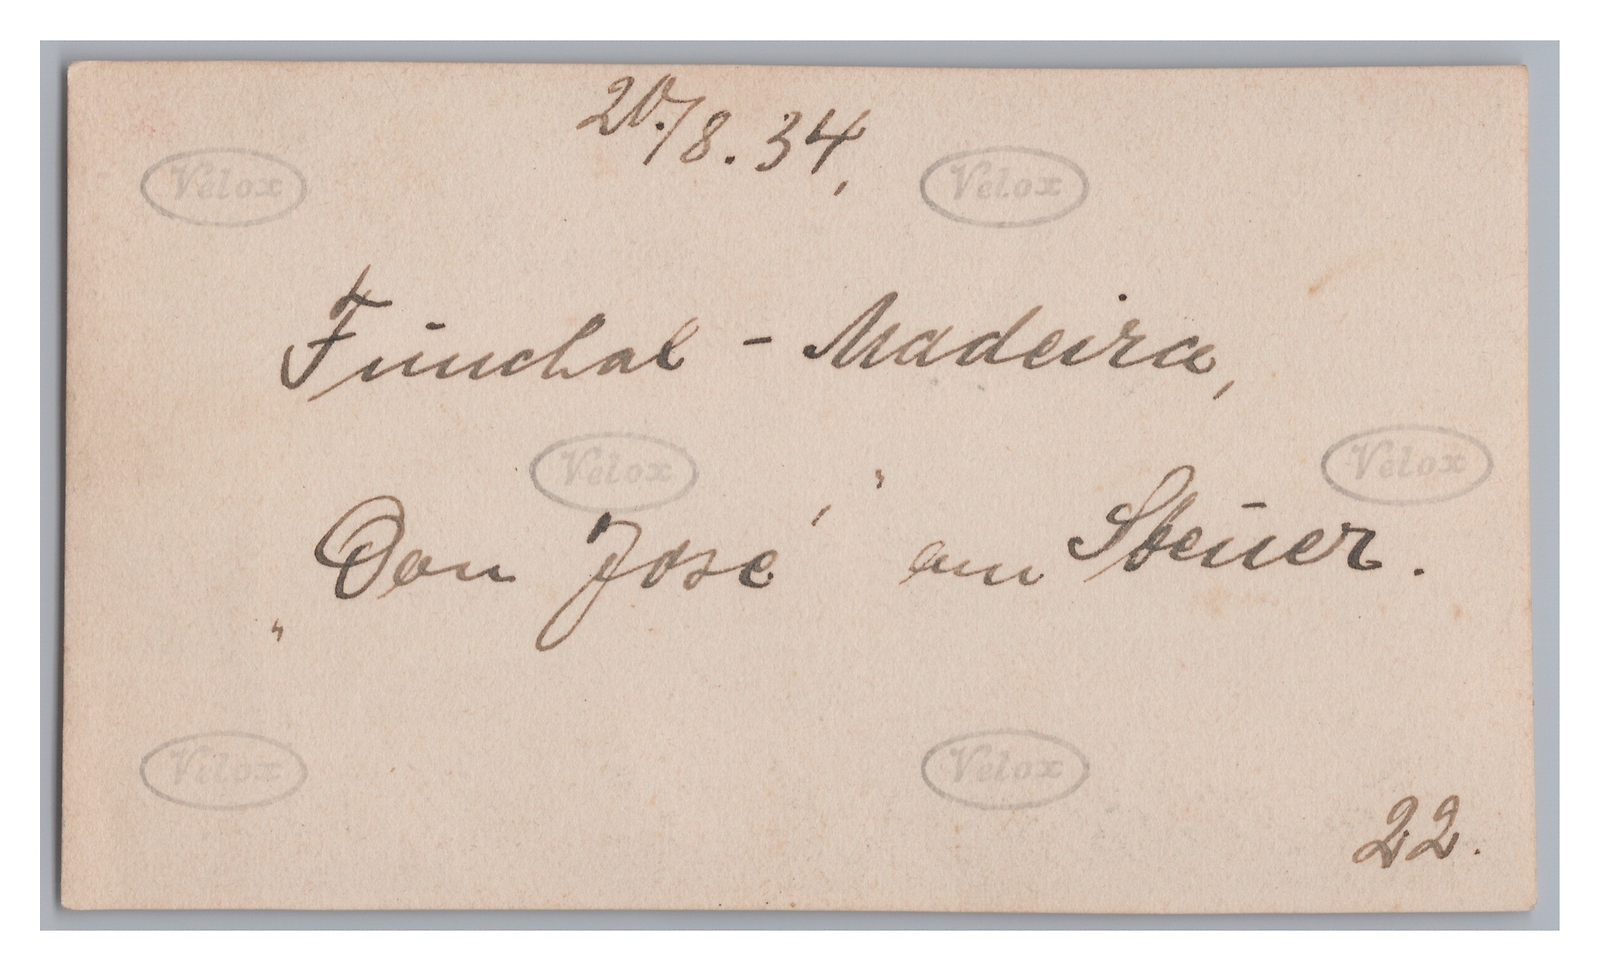 20./8.34,
Velox Velox
Funchal - Madeira,
Velox Velox
„Don José," am Steuer.
Velox Velox
22.